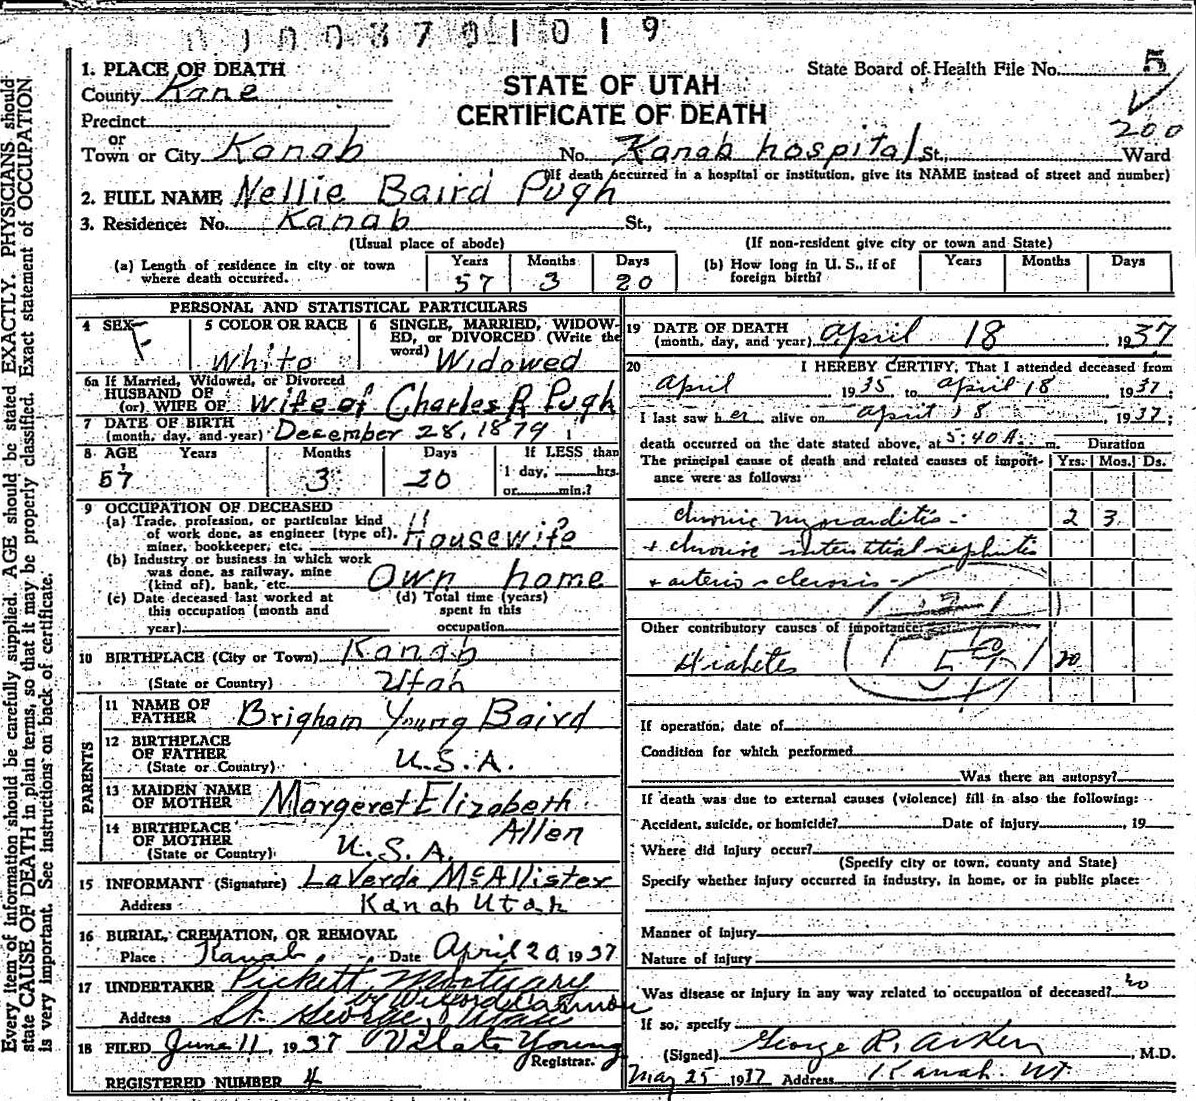 1. PLACE OF DEATH
County Kane
Precinct
or
Town or City Kanab No. Kanab hospital St., Ward
(If death occurred in a hospital or institution, give its NAME instead of street and number)
STATE OF UTAH
CERTIFICATE OF DEATH
State Board of Health File No. 5
200
2. FULL NAME Nellie Baird Pugh
3. Residence: No. Kanab St.,
(Usual place of abode) (If non-resident give city or town and State)
(a) Length of residence in city or town where death occurred. Years 57 Months 3 Days 20
(b) How long in U. S., if of foreign birth? Years Months Days
PERSONAL AND STATISTICAL PARTICULARS
4 SEX F
5 COLOR OR RACE White
6 SINGLE, MARRIED, WIDOWED, OR DIVORCED (Write the word) Widowed
6a If Married, Widowed, or Divorced
HUSBAND OF
(or) WIFE OF wife of Charles R Pugh
7 DATE OF BIRTH
(month, day, and year) December 28, 1879
8 AGE Years 57 Months 3 Days 20 If LESS than
1 day, hrs.
or min.?
9 OCCUPATION OF DECEASED
(a) Trade, profession, or particular kind
of work done, as engineer (type of),
miner, bookkeeper, etc. Housewife
(b) Industry or business in which work
was done, as railway, mine
(kind of), bank, etc. Own home
(c) Date deceased last worked at
this occupation (month and
year)
(d) Total time (years)
spent in this
occupation
10 BIRTHPLACE (City or Town) Kanab
(State or Country) Utah
PARENTS
11 NAME OF
FATHER Brigham Young Baird
12 BIRTHPLACE
OF FATHER
(State or Country) U.S.A.
13 MAIDEN NAME
OF MOTHER Margeret Elizabeth
Allen
14 BIRTHPLACE
OF MOTHER
(State or Country) U.S.A.
15 INFORMANT (Signature) LaVerda McAllister
Address Kanab Utah
16 BURIAL, CREMATION, OR REMOVAL
Place Kanab Date April 20, 1937
17 UNDERTAKER Pickett Mortuary
by Wilford
Address St. George, Utah
18 FILED June 11, 1937 Vilate Young
Registrar.
REGISTERED NUMBER 4
19 DATE OF DEATH
(month, day, and year) April 18, 1937
20 I HEREBY CERTIFY, That I attended deceased from
April, 1935 to April 18, 1937;
I last saw her alive on April 18, 1937;
death occurred on the date stated above, at 5:40 A. m. Duration
The principal cause of death and related causes of importance were as follows: Yrs. Mos. Ds.
chronic myocarditis 2 3
+ chronic interstitial nephritis
+ arterio sclerosis
Other contributory causes of importance:
Diabetes 20
If operation, date of
Condition for which performed
Was there an autopsy?
If death was due to external causes (violence) fill in also the following:
Accident, suicide, or homicide? Date of injury , 19
Where did injury occur?
(Specify city or town, county and State)
Specify whether injury occurred in industry, in home, or in public place:
Manner of injury
Nature of injury
Was disease or injury in any way related to occupation of deceased? no
If so, specify
(Signed) George R. Aiken, M.D.
May 25 1937 Address Kanab Ut
Every item of information should be carefully supplied. AGE should be stated EXACTLY. PHYSICIANS should
state CAUSE OF DEATH in plain terms, so that it may be properly classified. Exact statement of OCCUPATION
is very important. See instructions on back of certificate.